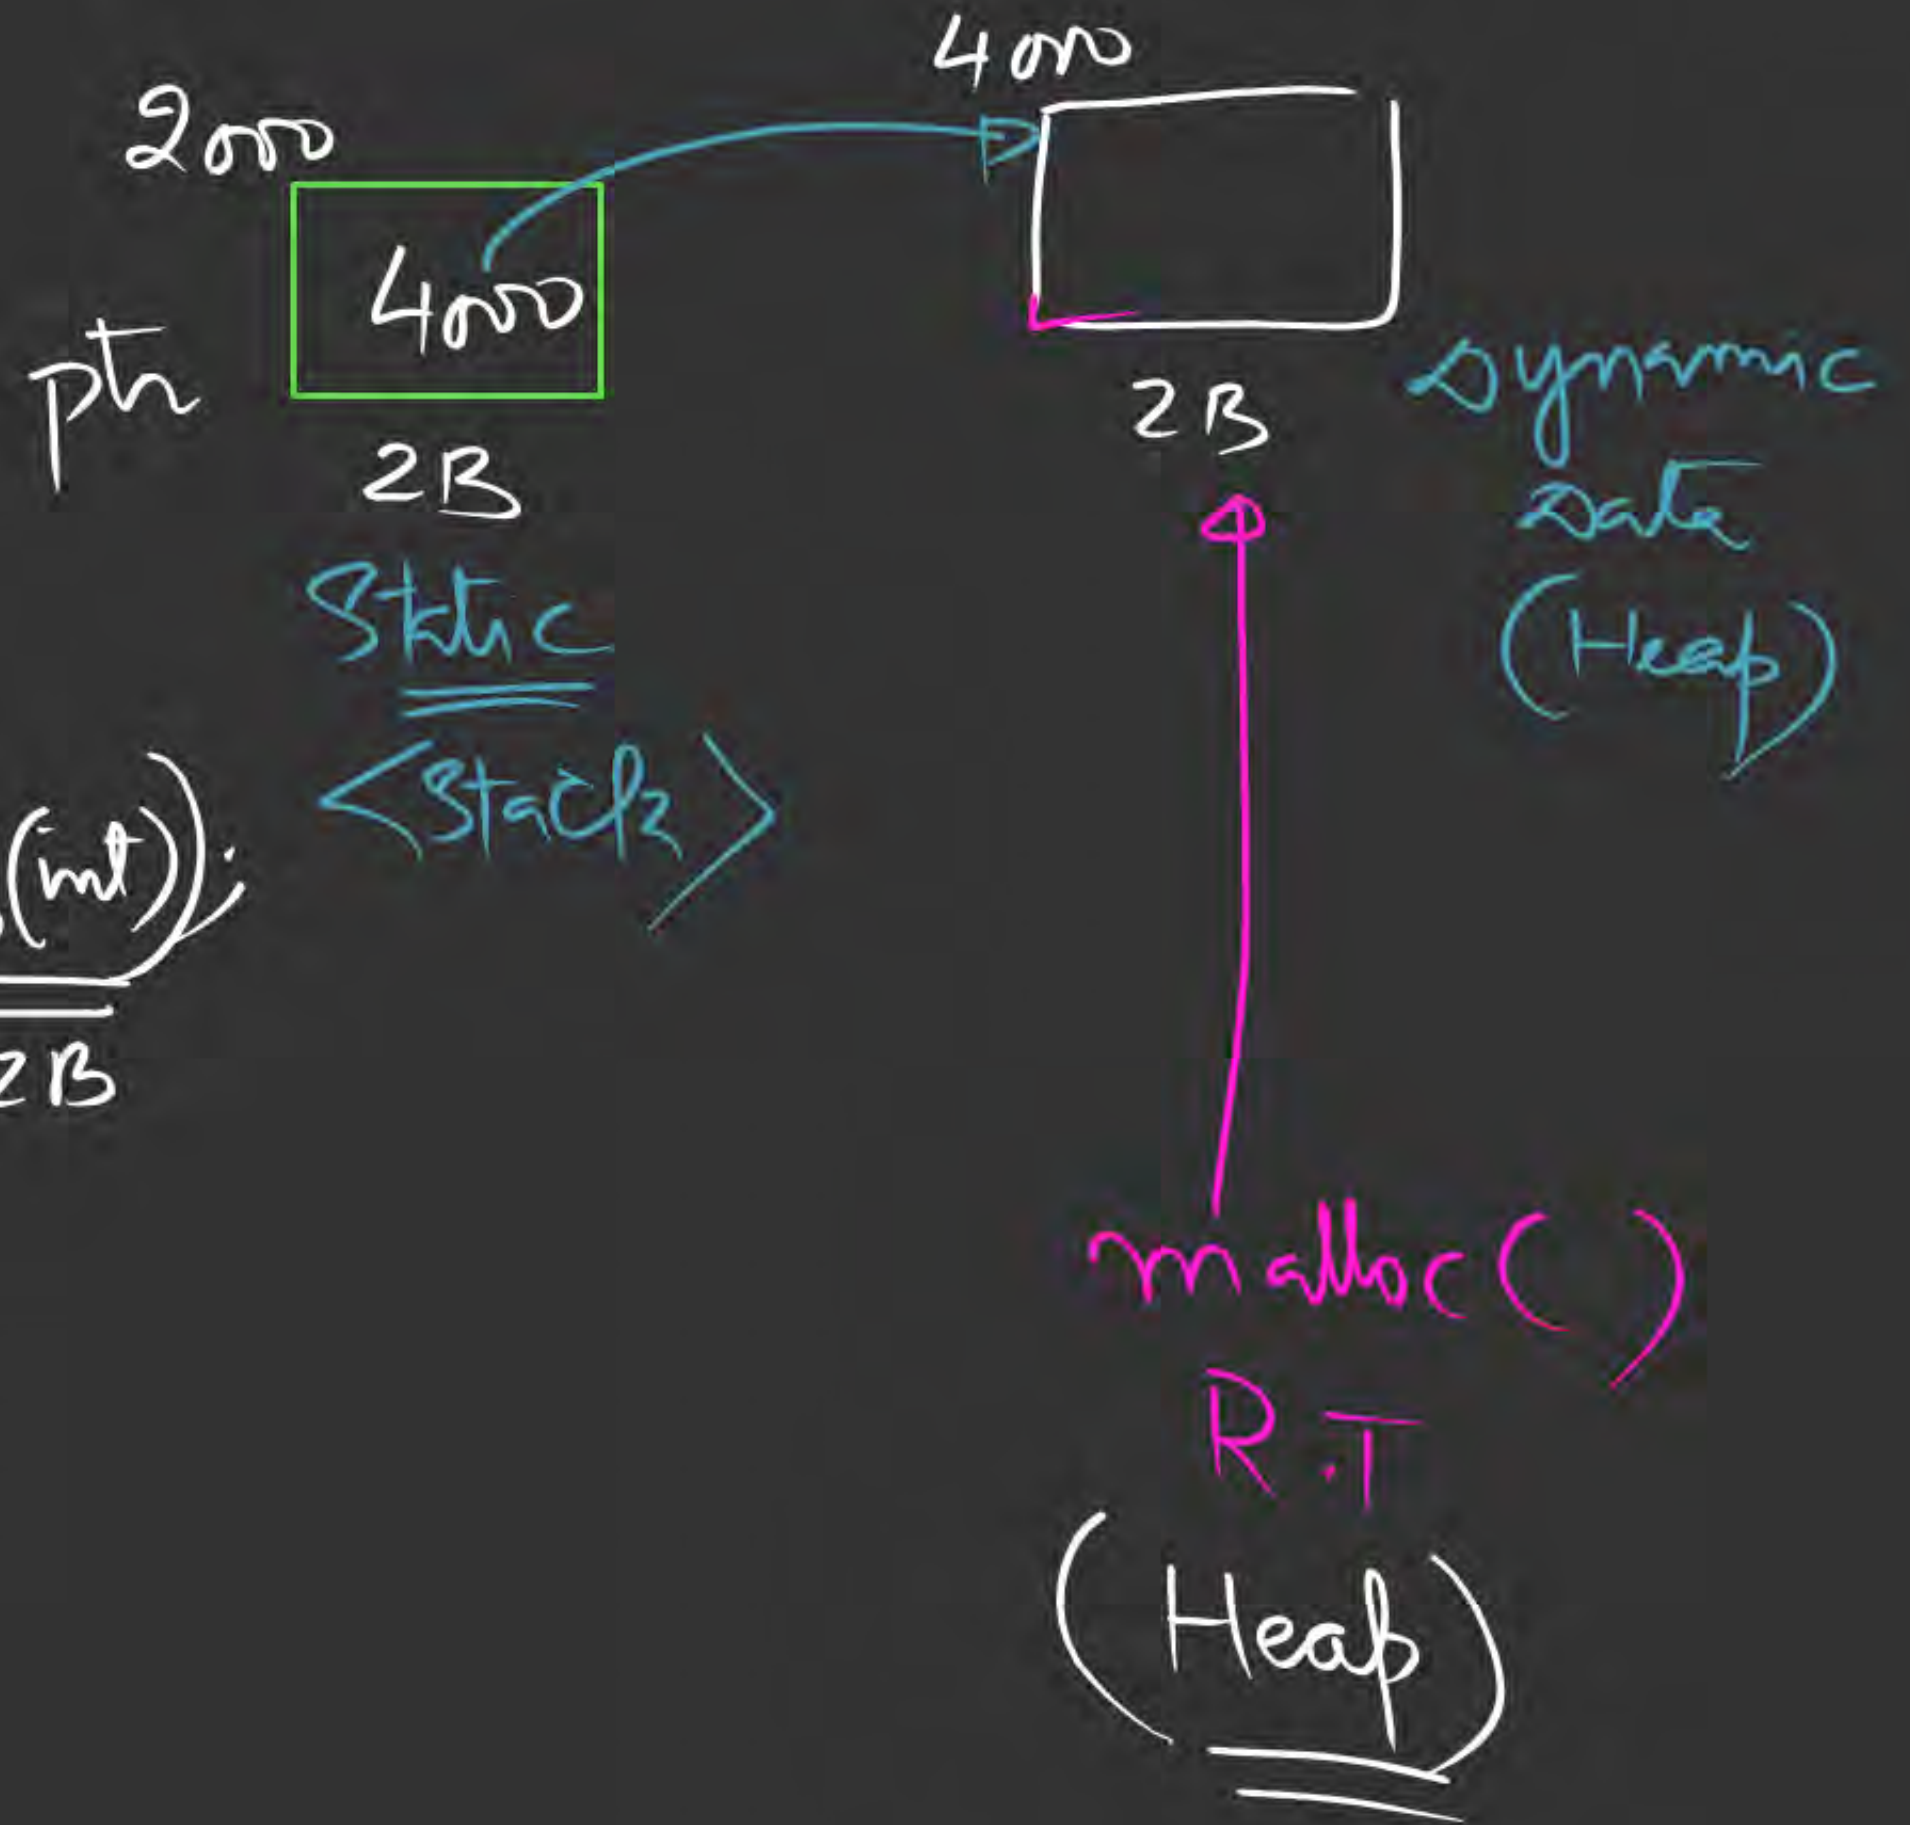 4000
2000
4000
ptr
2B
2B
Dynamic
Data
(Heap)
Static
<Stack>
(int));
2B
malloc( )
R.T
(Heap)